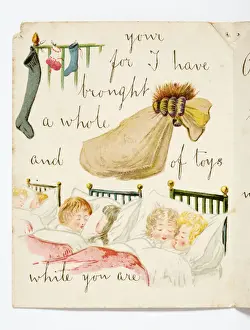 your
for I have
brought
a whole
and of toys
white you are